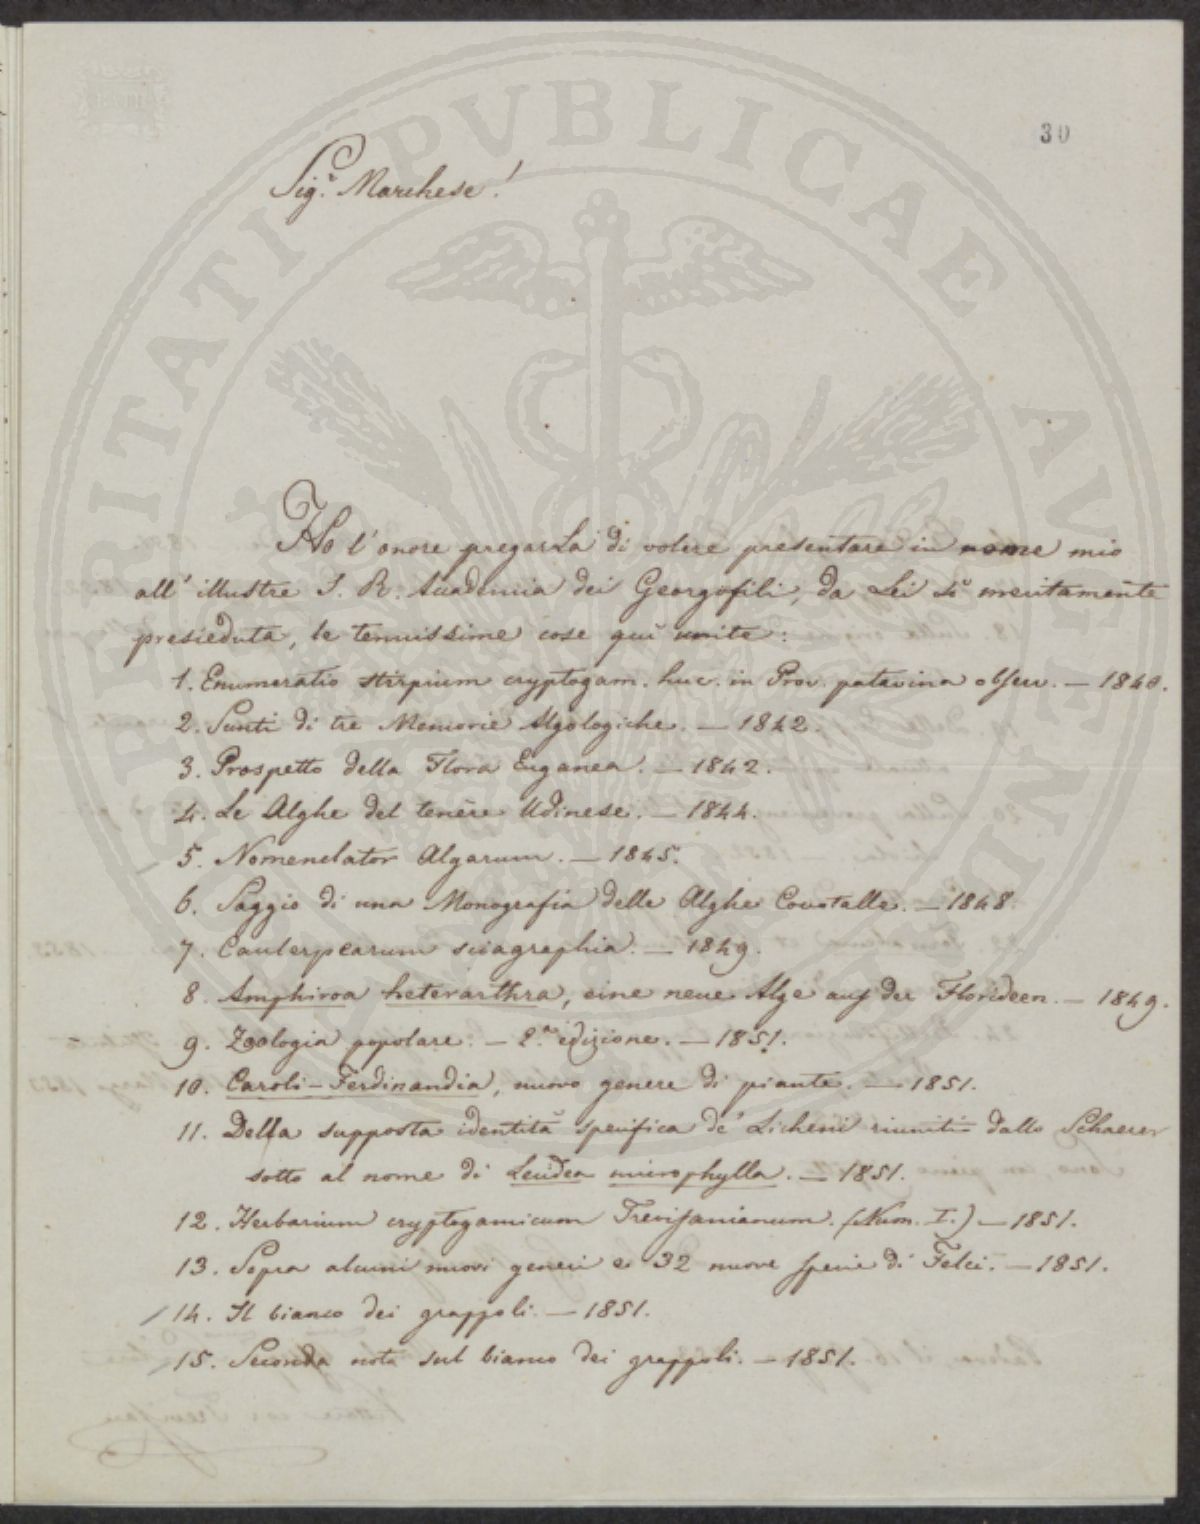 30
Sig.r Marchese!
Ho l'onore pregarLa di volere presentare in nome mio
all'illustre I. R. Accademia dei Georgofili, da Lei sì meritamente
presieduta, le tenuissime cose qui unite:
1. Enumeratio stirpium cryptogam. huc. in Prov. patavina observ. — 1840.
2. Sunti di tre Memorie Algologiche. — 1842.
3. Prospetto della Flora Euganea. — 1842.
4. Le Alghe del tenere Udinese. — 1844.
5. Nomenclator Algarum. — 1845.
6. Saggio di una Monografia delle Alghe Coccotalle. — 1848.
7. Caulerpearum sciagraphia. — 1849.
8. Amphiroa heterarthra, eine neue Alge aus der Florideen. — 1849.
9. Zoologia popolare. — 2.a edizione. — 1851.
10. Caroli-Ferdinandia, nuovo genere di piante. — 1851.
11. Della supposta identità specifica de' Licheni riuniti dallo Schaerer
sotto al nome di Lecidea microphylla. — 1851.
12. Herbarium cryptogamicum Trevisanianum. (Num. I.) — 1851.
13. Sopra alcuni nuovi generi e 32 nuove specie di Felci. — 1851.
14. Il bianco dei grappoli. — 1851.
15. Seconda nota sul bianco dei grappoli. — 1851.
PROSPERITATI PVBLICAE AVGENDAE